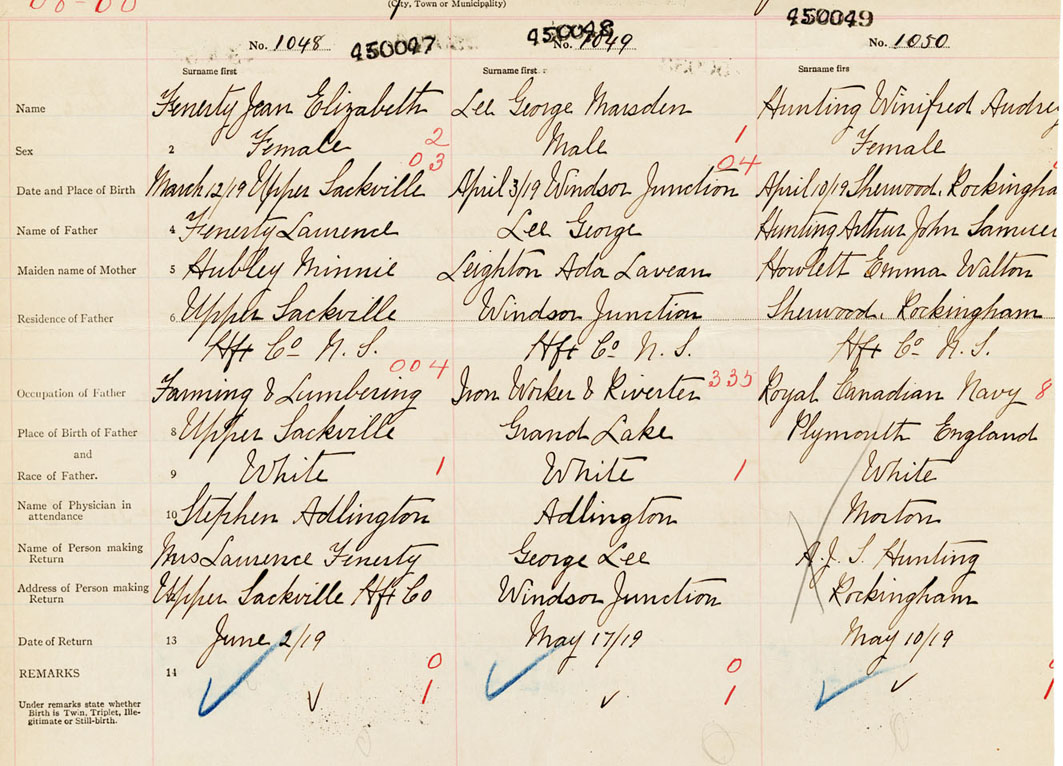 (City, Town or Municipality)
No. 1048 450047 450048 No. 1049 450049 No. 1050
Surname first Surname first Surname firs
Name Fenerty Jean Elizabeth Lee George Marsden Hunting Winifred Audrey
2 1
Sex 2 Female Male Female
03 04
Date and Place of Birth March 12/19 Upper Sackville April 3/19 Windsor Junction April 10/19 Sherwood, Rockingha
Name of Father 4 Fenerty Laurence Lee George Hunting Arthur John Samuel
Maiden name of Mother 5 Hubley Minnie Leighton Ada Lavean Howlett Emma Walton
Residence of Father 6 Upper Sackville Windsor Junction Sherwood, Rockingham
Hfx Co N. S. Hfx Co N. S. Hfx Co N. S.
004 335 8
Occupation of Father Farming & Lumbering Iron Worker & Riverter Royal Canadian Navy
Place of Birth of Father 8 Upper Sackville Grand Lake Plymouth England
and
Race of Father. 9 White 1 White 1 White
Name of Physician in
attendance 10 Stephen Adlington Adlington Morton
Name of Person making
Return Mrs Laurence Fenerty George Lee A. J. S. Hunting
Address of Person making
Return Upper Sackville Hfx Co Windsor Junction Rockingham
Date of Return 13 June 2/19 May 17/19 May 10/19
REMARKS 14 0 0
1 1 1
Under remarks state whether
Birth is Twin, Triplet, Ille-
gitimate or Still-birth.